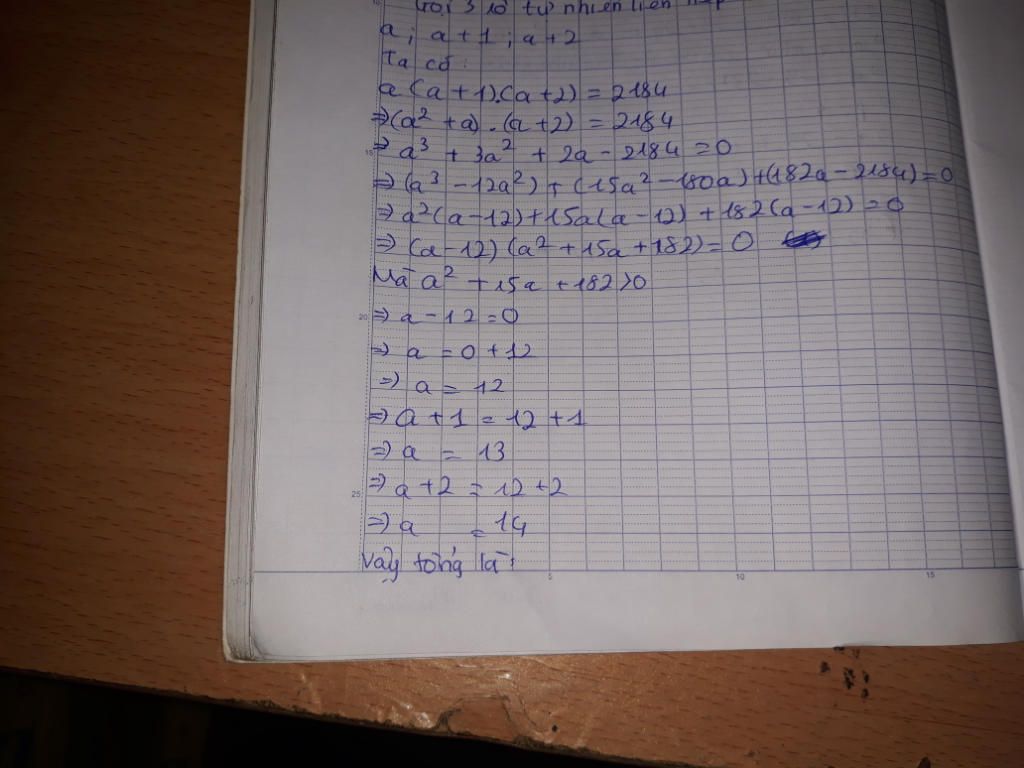 Gọi 3 số tự nhiên liên tiếp
a; a+1; a+2
Ta có:
a(a+1).(a+2) = 2184
⇒(a² + a) . (a+2) = 2184
⇒ a³ + 3a² + 2a - 2184 = 0
⇒ (a³ - 12a²) + (15a² - 180a) + (182a - 2184) = 0
⇒ a²(a-12) + 15a(a-12) + 182(a-12) = 0
⇒ (a-12) (a² + 15a + 182) = 0
Mà a² + 15a + 182 > 0
⇒ a - 12 = 0
⇒ a = 0 + 12
⇒ a = 12
⇒ a + 1 = 12 + 1
⇒ a = 13
⇒ a + 2 = 12 + 2
⇒ a = 14
Vậy tổng là: